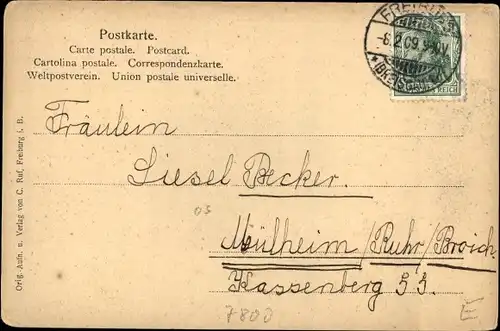 Postkarte.
Carte postale. Postcard.
Cartolina postale. Correspondenzkarte.
Weltpostverein. Union postale universelle.
FREIBURG
-6.2.09.
*(BREISGAU)
REICH
Fräulein
Liesel Becker.
03
Mülheim/Ruhr/Broich
Kassenberg 53.
7800
E
Orig. Aufn. u. Verlag von C. Ruf, Freiburg i. B.